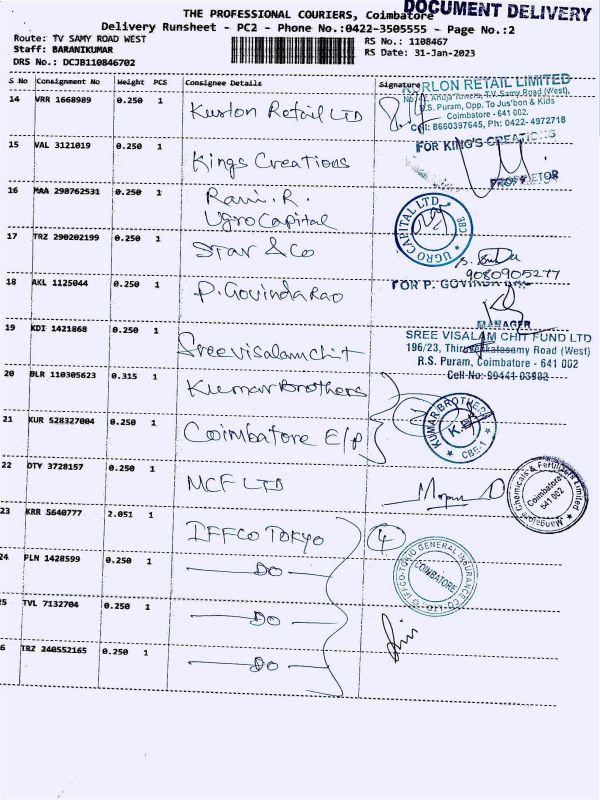 THE PROFESSIONAL COURIERS, Coimbatore
DOCUMENT DELIVERY
Delivery Runsheet - PC2 - Phone No.:0422-3505555 - Page No.:2
Route: TV SAMY ROAD WEST
RS No.: 1108467
Staff: BARANIKUMAR
RS Date: 31-Jan-2023
DRS No.: DCJB110846702
S No Consignment No Weight PCS Consignee Details Signature
14 VRR 1668989 0.250 1 Kurlon Retail LTD
KURLON RETAIL LIMITED
R.S. Puram, Opp. To Jus'bon & Kids
Coimbatore - 641 002.
Cell: 8660397645, Ph: 0422-4972718
15 VAL 3121019 0.250 1 Kings Creations
FOR KING'S CREATIONS
PROPRIETOR
16 MAA 298762531 0.250 1 Ravi. R.
Ugro Capital
UGRO CAPITAL LTD. CBE
17 TRZ 290202199 0.250 1 Star & Co
9080905277
18 AKL 1125044 0.250 1 P. Govinda Rao
FOR P. GOVINDA RAO
MANAGER
19 KDI 1421868 0.250 1 Sree Visalam Chit
SREE VISALAM CHIT FUND LTD
196/23, Thiruvenkatasamy Road (West)
R.S. Puram, Coimbatore - 641 002
Cell No: 99441 03982
20 BLR 110305623 0.315 1 Kumar Brothers
KUMAR BROTHERS K.B. CBE-1
21 KUR 528327004 0.250 1 Coimbatore E/P
22 DTY 3728157 0.250 1 MCF LTD
Mangalore Chemicals & Fertilizers Limited
Coimbatore
641 002
23 KRR 5640777 2.051 1 IFFCO TOKYO
4
IFFCO-TOKIO GENERAL INSURANCE CO. LTD.
COIMBATORE
24 PLN 1428599 0.250 1 — DO —
5 TVL 7132704 0.250 1 — DO —
6 TRZ 240552165 0.250 1 — DO —